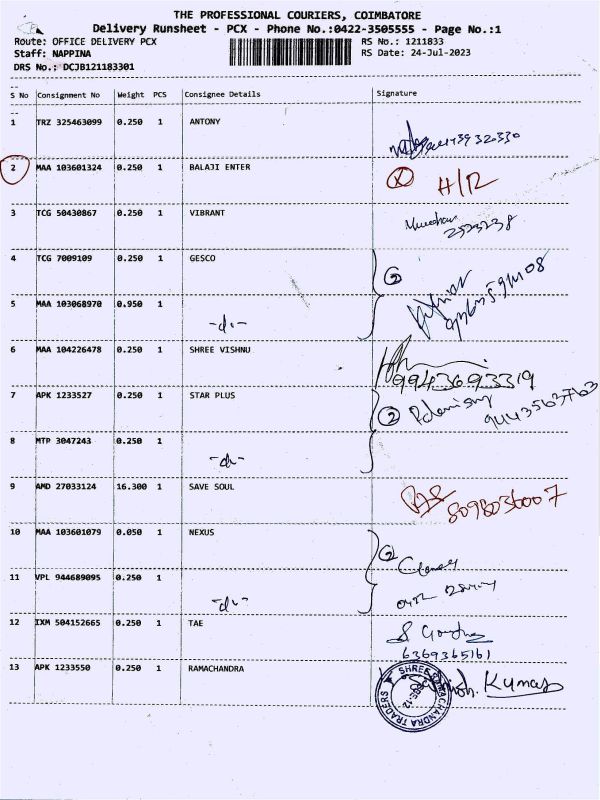 THE PROFESSIONAL COURIERS, COIMBATORE
Delivery Runsheet - PCX - Phone No.:0422-3505555 - Page No.:1
Route: OFFICE DELIVERY PCX RS No.: 1211833
Staff: NAPPINA RS Date: 24-Jul-2023
DRS No.: DCJB121183301
S No Consignment No Weight PCS Consignee Details Signature
1 TRZ 325463099 0.250 1 ANTONY
2 MAA 103601324 0.250 1 BALAJI ENTER X H/R
3 TCG 50430867 0.250 1 VIBRANT
2523238
4 TCG 7009109 0.250 1 GESCO 2
5 MAA 103068970 0.950 1
-do-
6 MAA 104226478 0.250 1 SHREE VISHNU
9943693319
7 APK 1233527 0.250 1 STAR PLUS 2
9443563763
8 MTP 3047243 0.250 1
-do-
9 AMD 27033124 16.300 1 SAVE SOUL
8098036007
10 MAA 103601079 0.050 1 NEXUS 2
11 VPL 944689095 0.250 1
-do-
12 IXM 504152665 0.250 1 TAE
6369365161
13 APK 1233550 0.250 1 RAMACHANDRA Kumar
SHREE RAMACHANDRA TRADERS